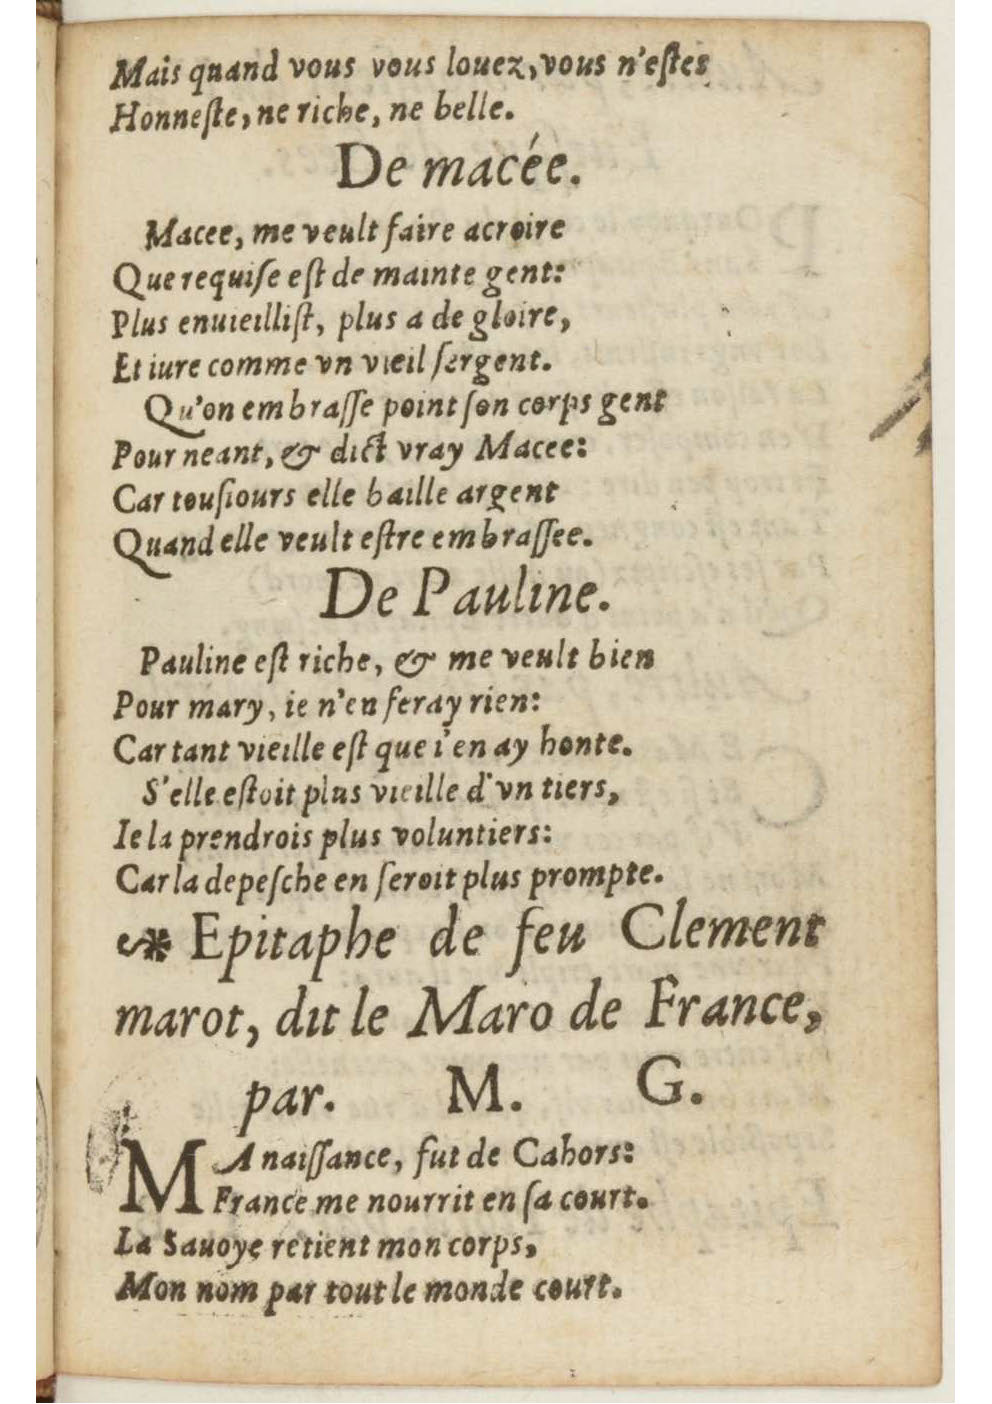 Mais quand vous vous louez, vous n'eſtes
Honneſte, ne riche, ne belle.
De macée.
Macee, me veult faire acroire
Que requiſe eſt de mainte gent:
Plus enuieilliſt, plus a de gloire,
Et iure comme vn vieil ſergent.
Qu'on embraſſe point ſon corps gent
Pour neant, & dict vray Macee:
Car touſiours elle baille argent
Quand elle veult eſtre embraſſee.
De Pauline.
Pauline eſt riche, & me veult bien
Pour mary, ie n'en feray rien:
Car tant vieille eſt que i'en ay honte.
S'elle eſtoit plus vieille d'vn tiers,
Ie la prendrois plus voluntiers:
Car la depeſche en ſeroit plus prompte.
Epitaphe de feu Clement
marot, dit le Maro de France,
par. M. G.
MA naiſſance, fut de Cahors:
France me nourrit en ſa court.
La Sauoye retient mon corps,
Mon nom par tout le monde court.